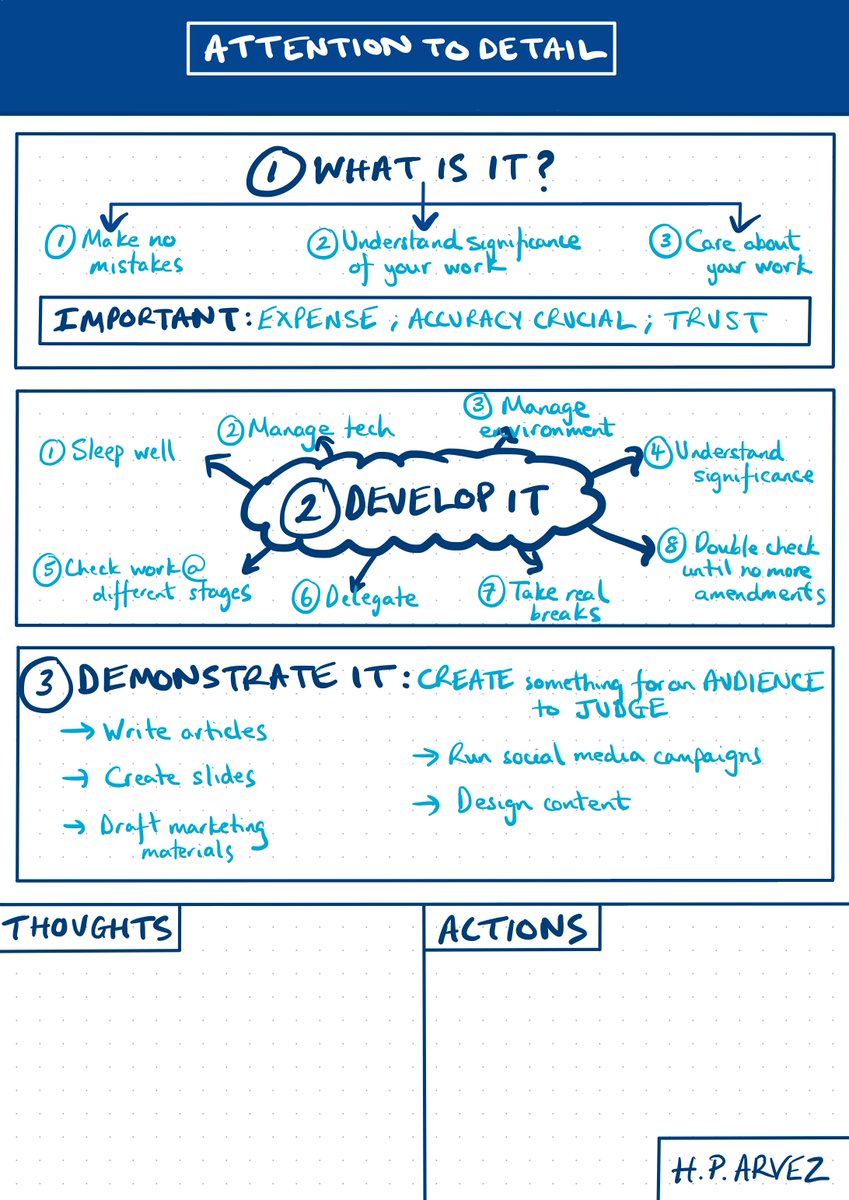 ATTENTION TO DETAIL
① WHAT IS IT?
① Make no
mistakes
② Understand significance
of your work
③ Care about
your work
IMPORTANT: EXPENSE ; ACCURACY CRUCIAL ; TRUST
① Sleep well
② Manage tech
③ Manage
environment
④ Understand
significance
② DEVELOP IT
⑤ Check work @
different stages
⑥ Delegate
⑦ Take real
breaks
⑧ Double check
until no more
amendments
③ DEMONSTRATE IT: CREATE something for an AUDIENCE
to JUDGE
→ Write articles
→ Create slides
→ Draft marketing
materials
→ Run social media campaigns
→ Design content
THOUGHTS
ACTIONS
H.P.ARVEZ